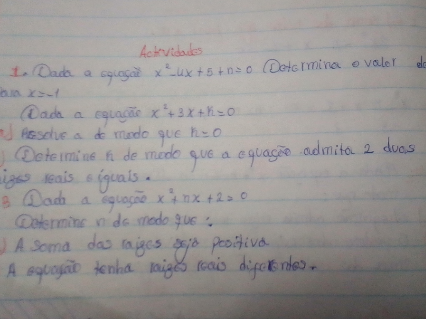 Actividades
1. Dada a equação x²-4x+5+n=0 Determina o valor de
para x=-1
Dada a equação x²+3x+n=0
a) Resolve a de modo que n=0
) Determine n de modo que a equação admita 2 duas
raizes reais e iguais.
3 Dada a equação x²+nx+2=0
Determine n de modo que:
) A soma das raizes seja positiva
A equação tenha raizes reais diferentes.